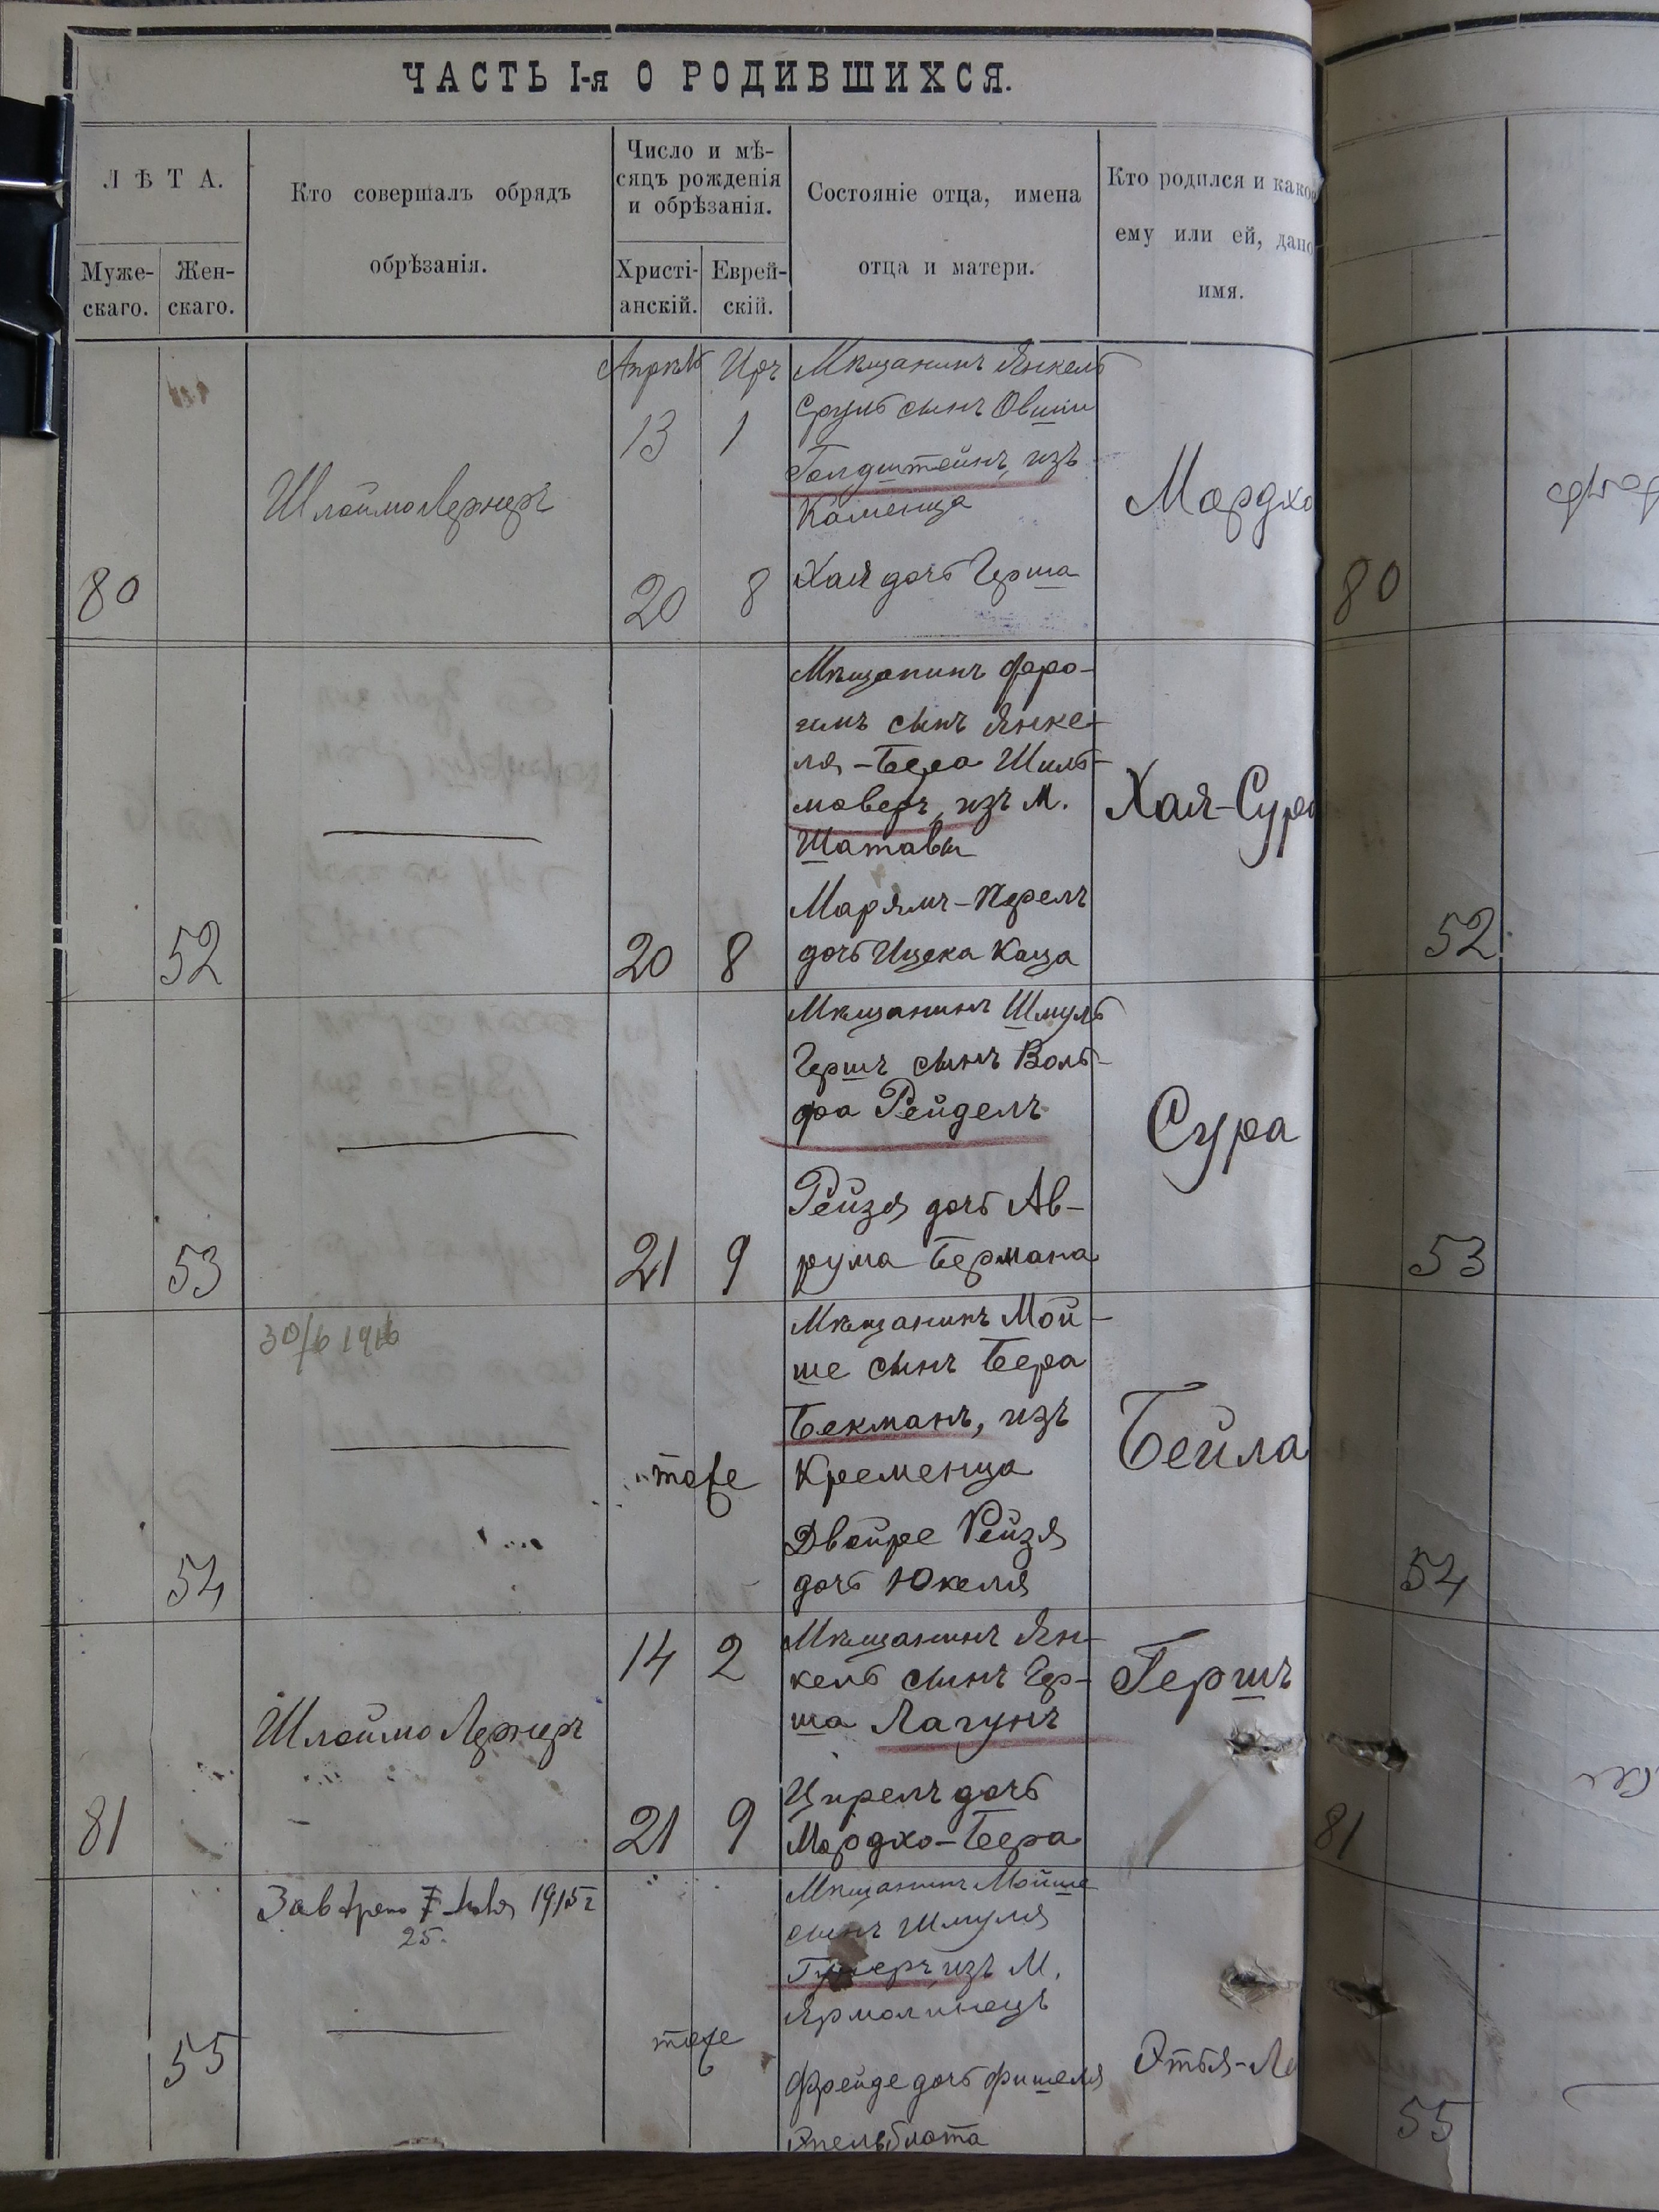 ЧАСТЬ I-я О РОДИВШИХСЯ.
ЛѢТА.
Муже-
скаго.
Жен-
скаго.
Кто совершалъ обрядъ
обрѣзанія.
Число и мѣ-
сяцъ рожденія
и обрѣзанія.
Христі-
анскій.
Еврей-
скій.
Состояніе отца, имена
отца и матери.
Кто родился и какое
ему или ей, дано
имя.
80
Шлоймо Лернеръ
Апрѣль Иръ
13 1
20 8
Мѣщанинъ Янкель
Сруль сынъ Овши
Голдштейнъ, изъ
Каменца
Хая дочь Герша
Мордхо
80
52
20 8
Мѣщанинъ Фро-
имъ сынъ Янке-
ля-Бера
изъ М.
Шатавы
Марямъ-Перелъ
дочь Ицека Каца
Хая-Сура
52
53
21 9
Мѣщанинъ Шмуль
Гершъ сынъ Воль-
фа Рейделъ
Рейзя дочь Ав-
рума Бермана
Сура
53
30/6 1916
54
тоже
Мѣщанинъ Мой-
ше сынъ Бера
Бекманъ, изъ
Кременца
Двойре Рейзя
дочь Юкеля
Бейла
54
81
Шлоймо Лернеръ
14 2
21 9
Мѣщанинъ Ян-
кель сынъ Гер-
ша Лагунъ
Ципрелъ дочь
Мордхо-Бера
Гершъ
81
7 1915 г
25.
55
тоже
Мѣщанинъ Мойше
сынъ Шмуля
изъ М.
Ярмолинецъ
Фрейде дочь Фишеля
Эпельблата
Этья-Ле
55